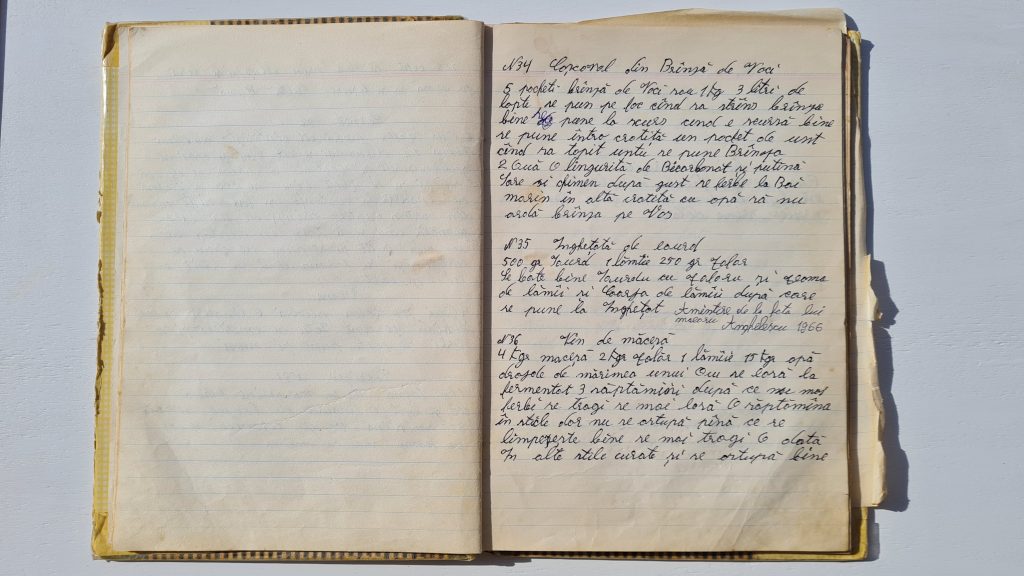 N34 Coșcoval din Brînză de Vaci
5 pacheti brînză de Vaci sau 1 Kg 3 litri de
lapte se pun pe foc cînd sa strîns brînza
bine se pune la scurs cind e scursă bine
se pune întro cratiță un pachet de unt
cînd sa topit untu se pune Brînza
2 Ouă O linguriță de Bicarbonat și putină
Sare și chimen după gust se ferbe la Bai
marin în altă cratiță cu apă să nu
ardă brînza pe Vas
N35 Inghețată de eaurd
500 gr Iaurd 1 lămîie 250 gr zahar
Se bate bine Iaurdu cu zaharu și zeama
de lămîi și Coarja de lămîi după care
se pune la Inghețat Amintere de la fata lui
Anghelescu 1966
N36 Vin de măceșă
4 Kgr maceșă 2 Kgr zahar 1 lămîie 15 Kgr apă
drojde de mărimea unui Ou se lasă la
fermentat 3 săptămiòri după ce nu mai
ferbi se tragi se mai lasă O săptămîna
în sticle dar nu se astupă pînă ce se
limpezeste bine se mai tragi O dată
In alte sticle curate și se astupă bine